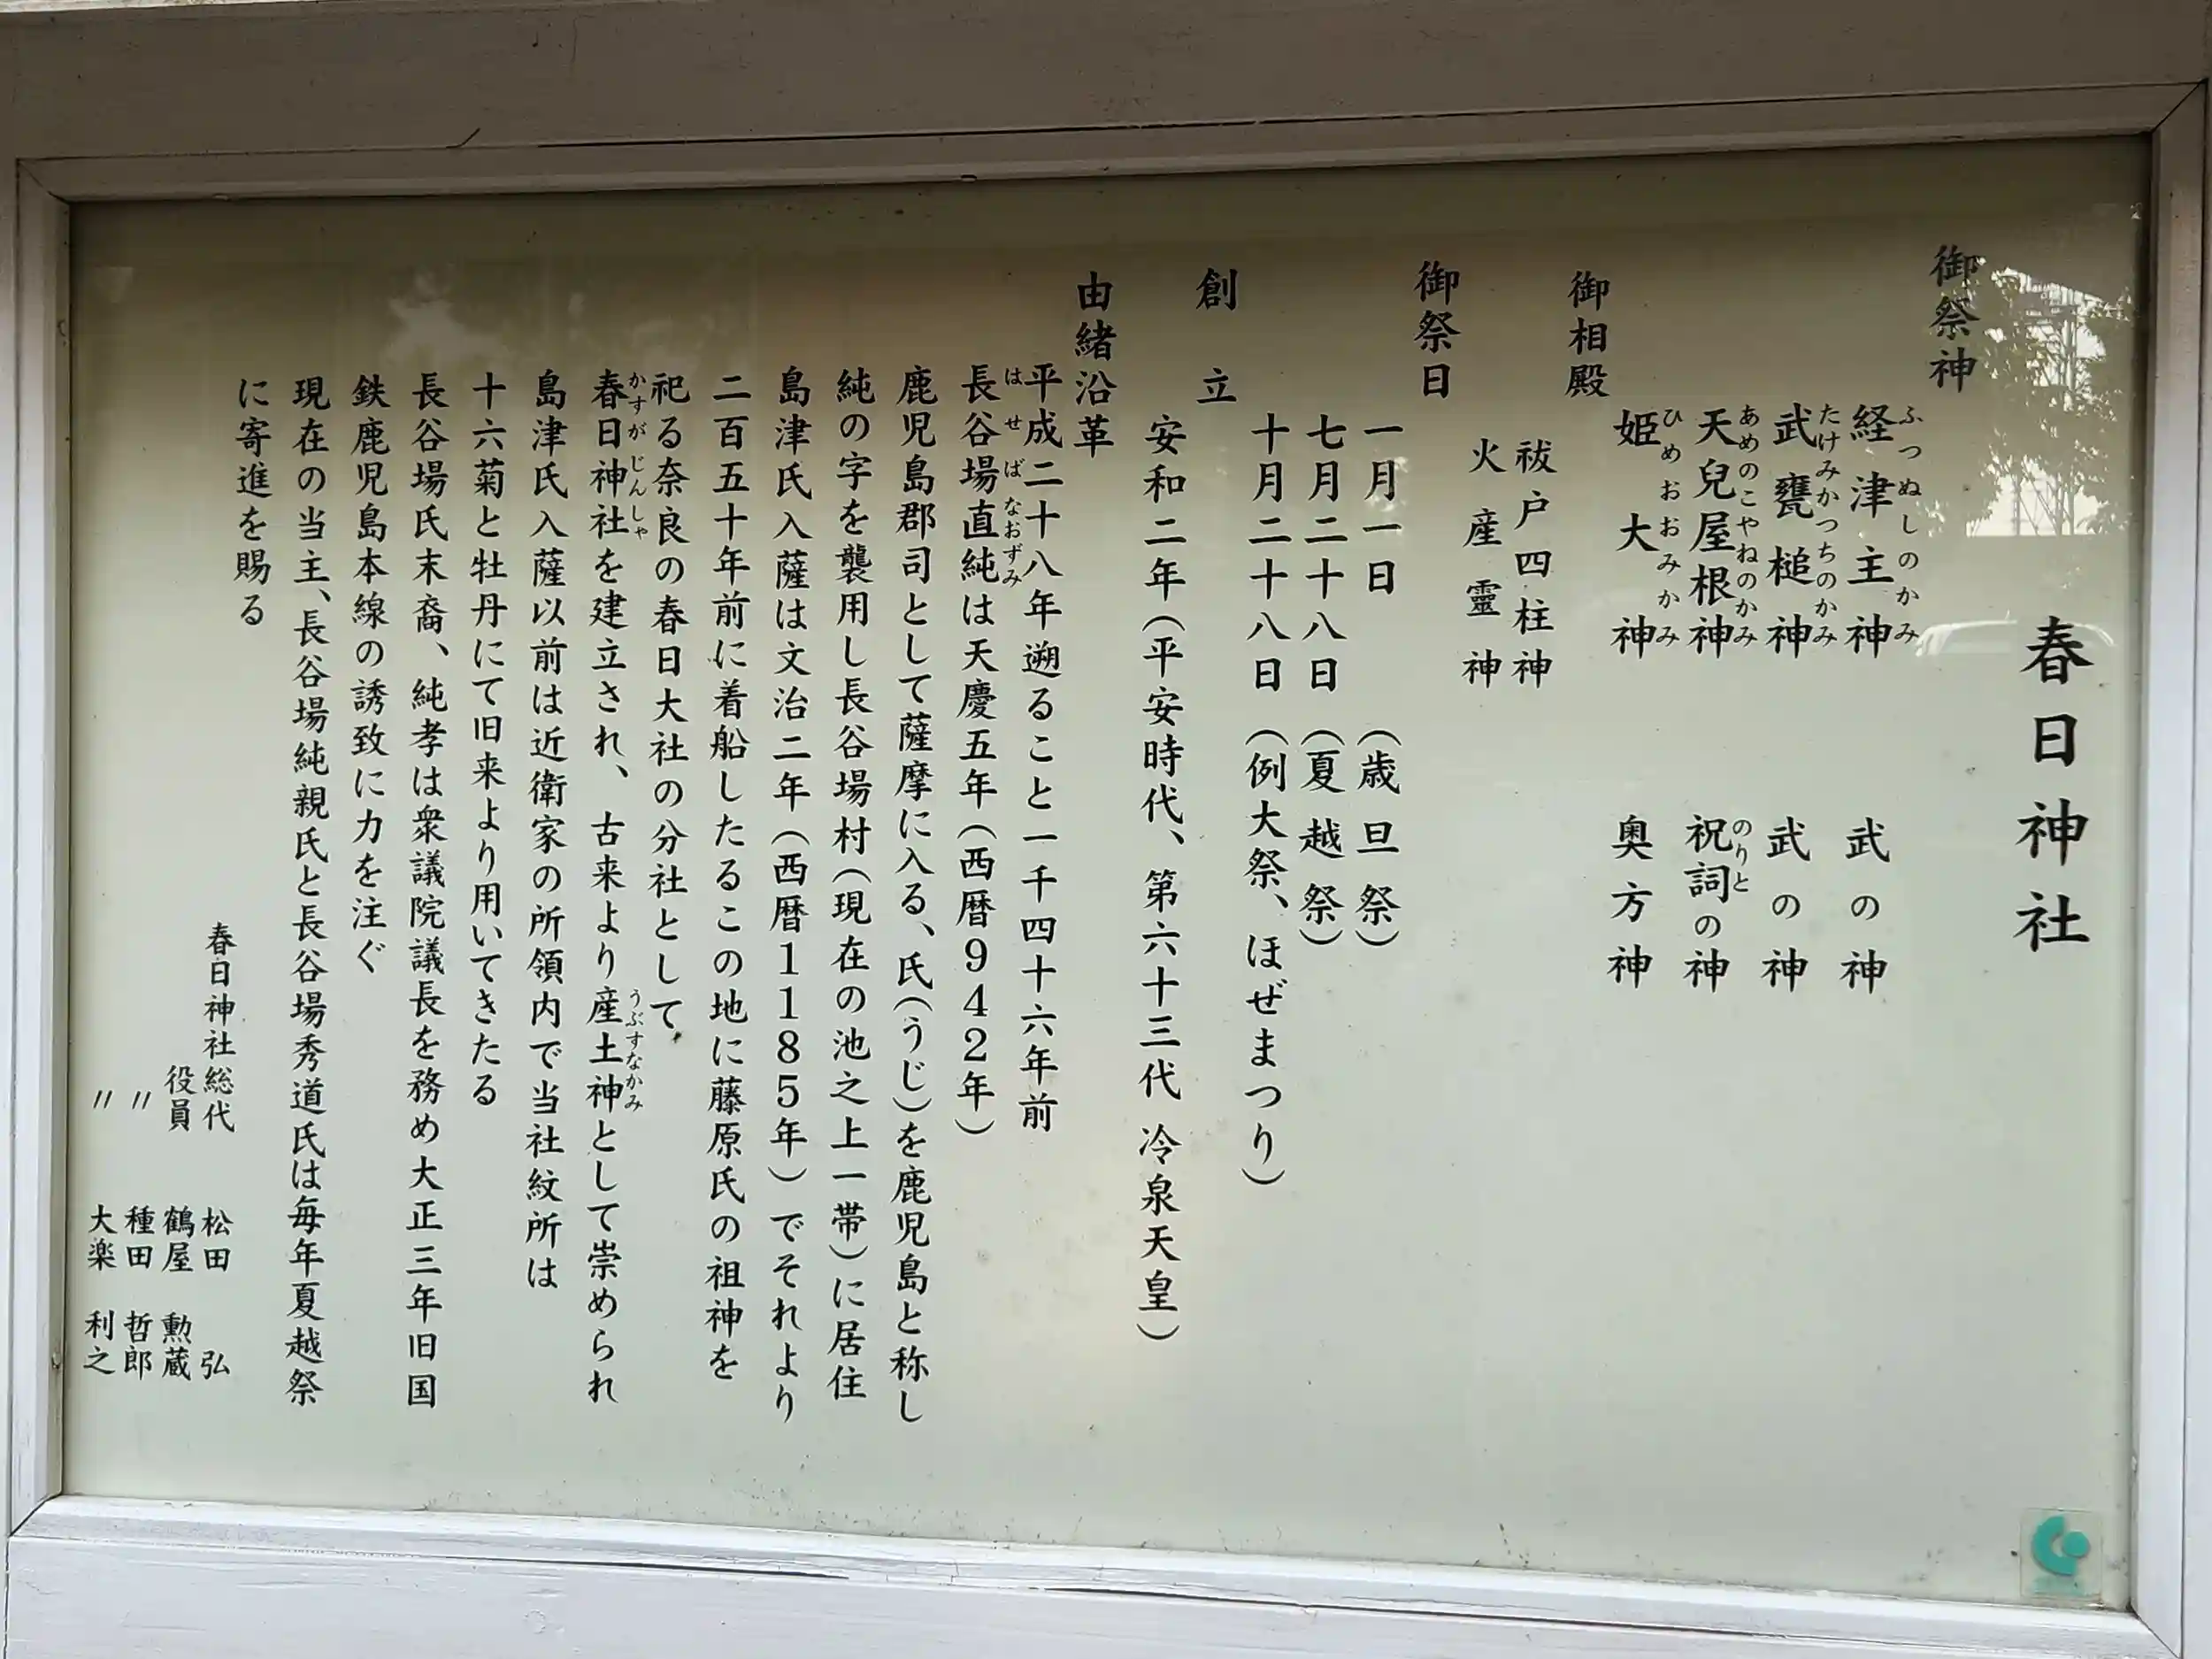 春日神社
御祭神
経津主神 武の神
ふつぬしのかみ
武甕槌神 武の神
たけみかつちのかみ
天兒屋根神 祝詞の神
あめのこやねのかみ のりと
姫大神 奥方神
ひめおおみかみ
御相殿
祓戸四柱神
火産霊神
御祭日
一月一日 (歳旦祭)
七月二十八日 (夏越祭)
十月二十八日 (例大祭、ほぜまつり)
創立
安和二年(平安時代、第六十三代 冷泉天皇)
由緒沿革
平成二十八年遡ること一千四十六年前
長谷場直純は天慶五年(西暦942年)
はせばなおずみ
鹿児島郡司として薩摩に入る、氏(うじ)を鹿児島と称し
純の字を襲用し長谷場村(現在の池之上一帯)に居住
島津氏入薩は文治二年(西暦1185年)でそれより
二百五十年前に着船したるこの地に藤原氏の祖神を
祀る奈良の春日大社の分社として、
春日神社を建立され、古来より産土神として崇められ
かすがじんしゃ うぶすなかみ
島津氏入薩以前は近衛家の所領内で当社紋所は
十六菊と牡丹にて旧来より用いてきたる
長谷場氏末裔、純孝は衆議院議長を務め大正三年旧国
鉄鹿児島本線の誘致に力を注ぐ
現在の当主、長谷場純親氏と長谷場秀道氏は毎年夏越祭
に寄進を賜る
春日神社総代 松田 弘
役員 鶴屋 勲蔵
〃 種田 哲郎
〃 大楽 利之